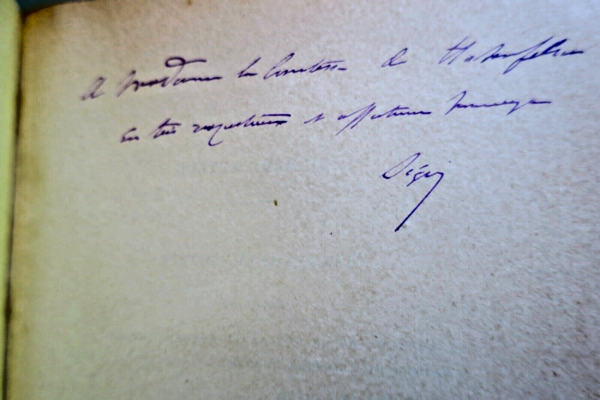 A Madame la Comtesse de
En très respectueux et affectueux hommage
Ségur